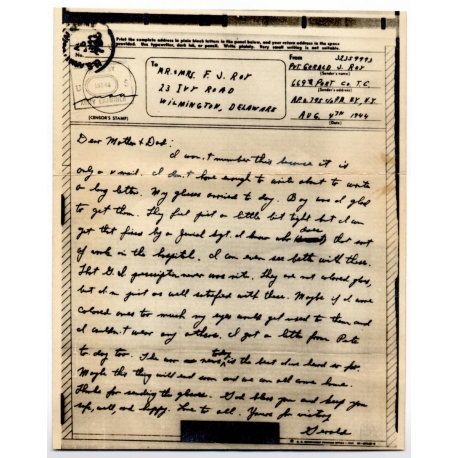 Print the complete address in plain block letters in the panel below, and your return address in the space
provided. Use typewriter, dark ink, or pencil. Write plainly. Very small writing is not suitable.
No.
To
MR. & MRS. F. J. ROY
23 IVY ROAD
WILMINGTON, DELAWARE
From
32359993
PVT. GERALD J. ROY
(Sender's name)
669TH PORT CO. T.C.
(Sender's address)
N.Y.
AUG 4TH 1944
(Date)
(CENSOR'S STAMP)
Dear Mother & Dad:
I won't number this because it is
only a v mail. I don't have enough to write about to write
a long letter. My glasses arrived to day. Boy was I glad
to get them. They feel just a little bit tight but I can
get that fixed by a Sgt. I know who does that sort
of work in the hospital. I can even see better with these.
That G.I. prescription never was right. They are not colored glass,
but I am just as well satisfied with these. Maybe if I wore
colored ones too much my eyes would get used to them and
I couldn't wear any others. I got a letter from Pete
to day too. The war news today is the best I've heard so far.
Maybe this thing will end soon and we can all come home.
Thanks for sending the glasses. God bless you and keep you
safe, well, and happy. Love to all. Yours for victory
Gerald